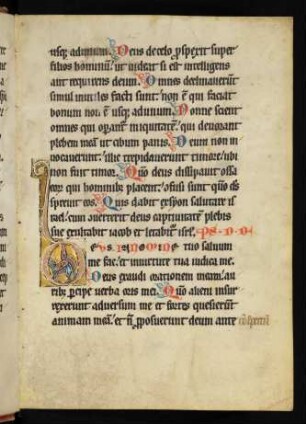 usq; ad unum. Deus de celo pspexit super
filios hominu. ut uideat si est intelligens
aut requirens deum. Omnes declinauerut
simul inutiles facti sunt. non e qui faciat
bonum non e usq; ad unum. Nonne scient
omnes qui opant iniquitate. qui deuorant
plebem mea ut cibum panis. Deum non in
uocauerunt. illic trepidauerunt timore. ubi
non fuit timor. Qm deus dissipauit ossa
eoz qui hominib; placent. confusi sunt qm ds
spreuit eos. Quis dabit ex syon salutare isr
hel. cum auerterit deus captiuitate plebis
sue exultabit iacob et letabit isrl.
Deus in nomine tuo saluum
me fac. et in uirtute tua iudica me.
Deus exaudi orationem meam. au
rib; percipe uerba oris mei. Qm alieni insur
rexerunt aduersum me et fortes quesierunt
animam mea. et n pposuerunt deum ante conspectu